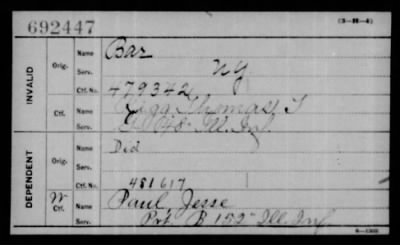 692447
(3-98-4)
INVALID
Orig.
Name
Bar
Serv.
NY
Ctf. No.
479342
Ctf.
Name
Thomas T
Serv.
Ill. Inf.
DEPENDENT
Orig.
Name
Did
Serv.
Ctf. No.
481617
W
Ctf.
Name
Paul Jesse
Serv.
Pvt. B 152" Ill. Inf